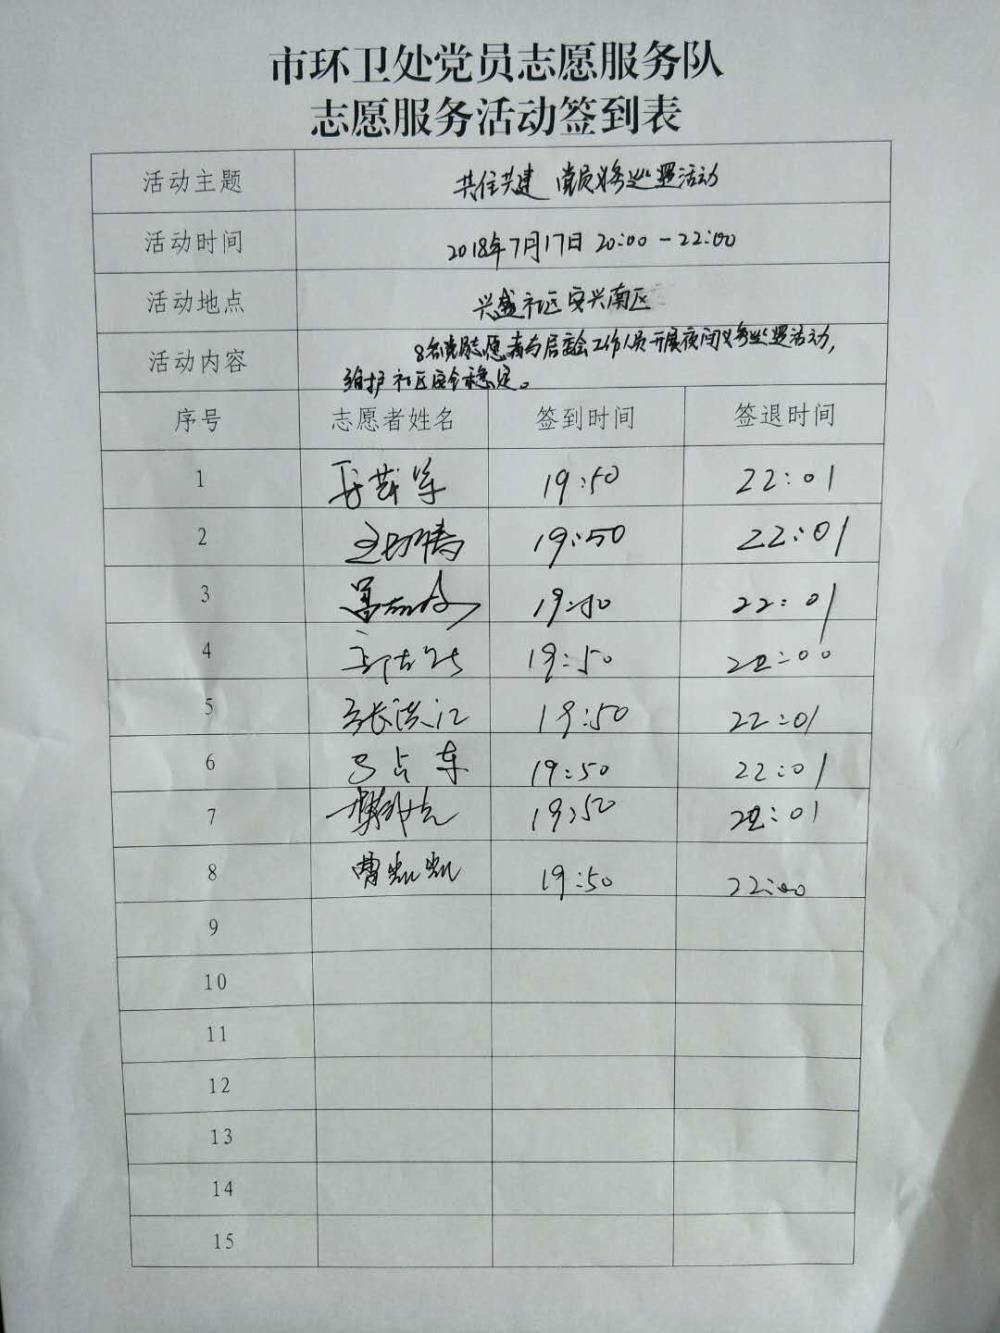 市环卫处党员志愿服务队
志愿服务活动签到表
活动主题 共住共建 党员义务巡逻活动
活动时间 2018年7月17日 20:00-22:00
活动地点 兴盛社区安兴南区
活动内容 8名党员志愿者与居委会工作人员开展夜间义务巡逻活动,
维护社区安全稳定。
序号 志愿者姓名 签到时间 签退时间
1 19:50 22:01
2 19:50 22:01
3 19:50 22:01
4 19:50 22:00
5 张洪江 19:50 22:01
6 马占东 19:50 22:01
7 19:50 22:01
8 曹灿灿 19:50 22:00
9
10
11
12
13
14
15